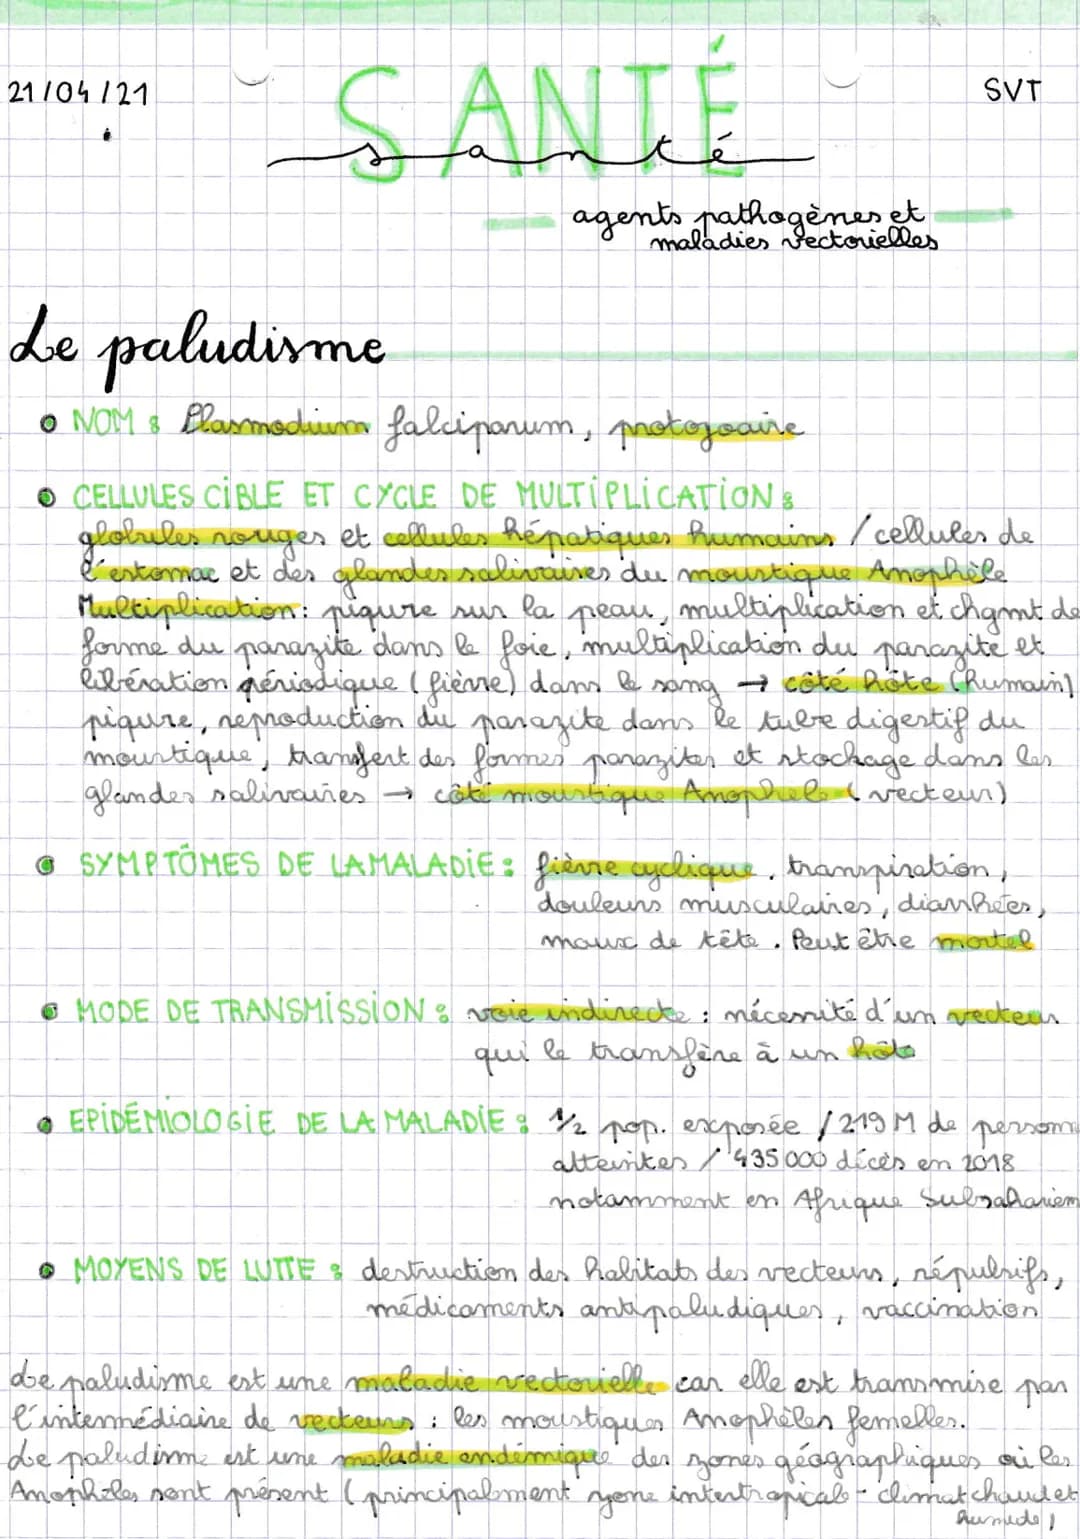 21/04/21
SVT
SANTÉ
santé
agents pathogènes et
maladies vectorielles
Le paludisme
NOM : Plasmodium falciparum, protozoaire
CELLULES CIBLE ET CYCLE DE MULTIPLICATION :
globules rouges et cellules hépatiques humains / cellules de
l'estomac et des glandes salivaires du moustique Anophèle
Multiplication : piqure sur la peau, multiplication et chgmt de
forme du parazite dans le foie, multiplication du parazite et
libération périodique (fièvre) dans le sang → côté hôte (humain)
piqure, reproduction du parazite dans le tube digestif du
moustique, transfert des formes parazites et stockage dans les
glandes salivaires → côté moustique Anophele (vecteur)
SYMPTÔMES DE LA MALADIE : fièvre cyclique, transpiration,
douleurs musculaires, diarrhées,
maux de tête. Peut être mortel
MODE DE TRANSMISSION : voie indirecte : nécessité d'un vecteur
qui le transfère à un hôte
EPIDÉMIOLOGIE DE LA MALADIE : 1/2 pop. exposée / 219 M de personn
atteintes / 435 000 décès en 2018
notamment en Afrique Subsaharienn
MOYENS DE LUTTE : destruction des habitats des vecteurs, répulsifs,
médicaments antipaludiques, vaccination
Le paludisme est une maladie vectorielle car elle est transmise par
l'intermédiaire de vecteurs : les moustiques Anophèles femelles.
Le paludisme est une maladie endémique des zones géographiques où les
Anophèles sont présent (principalement zone intertropicale - climat chaud et
humide)